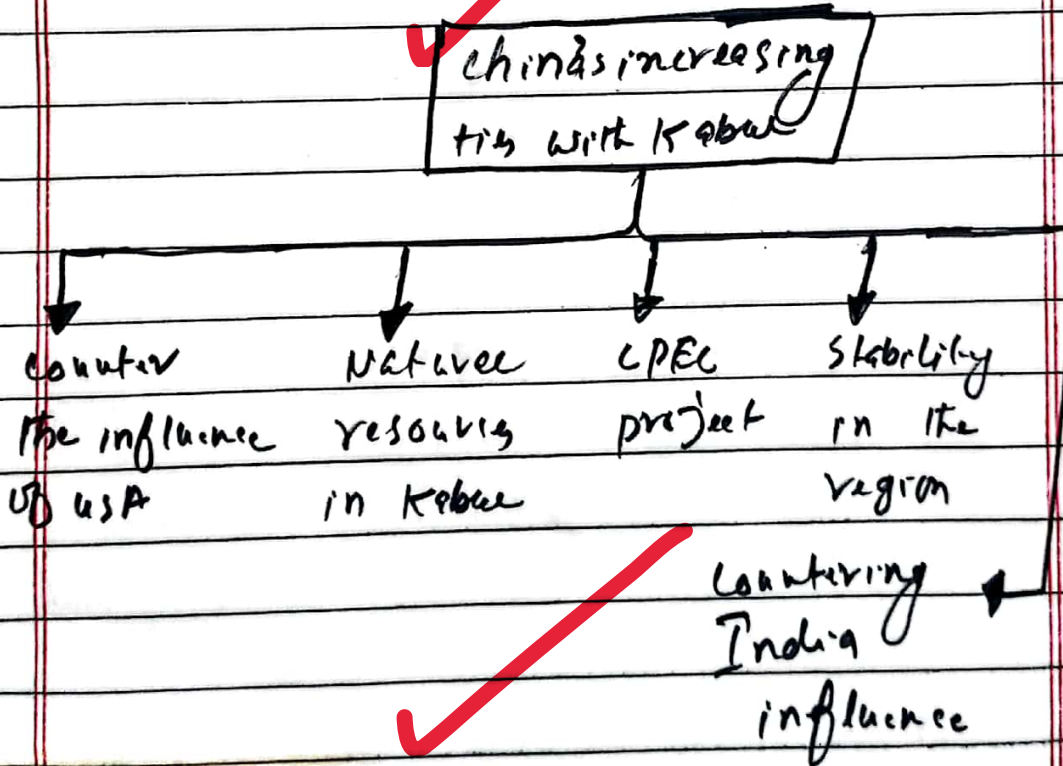 China's increasing
ties with Kabul
Counter
the influence
of USA
Natural
resources
in Kabul
CPEC
project
Stability
in the
region
Countering
India
influence